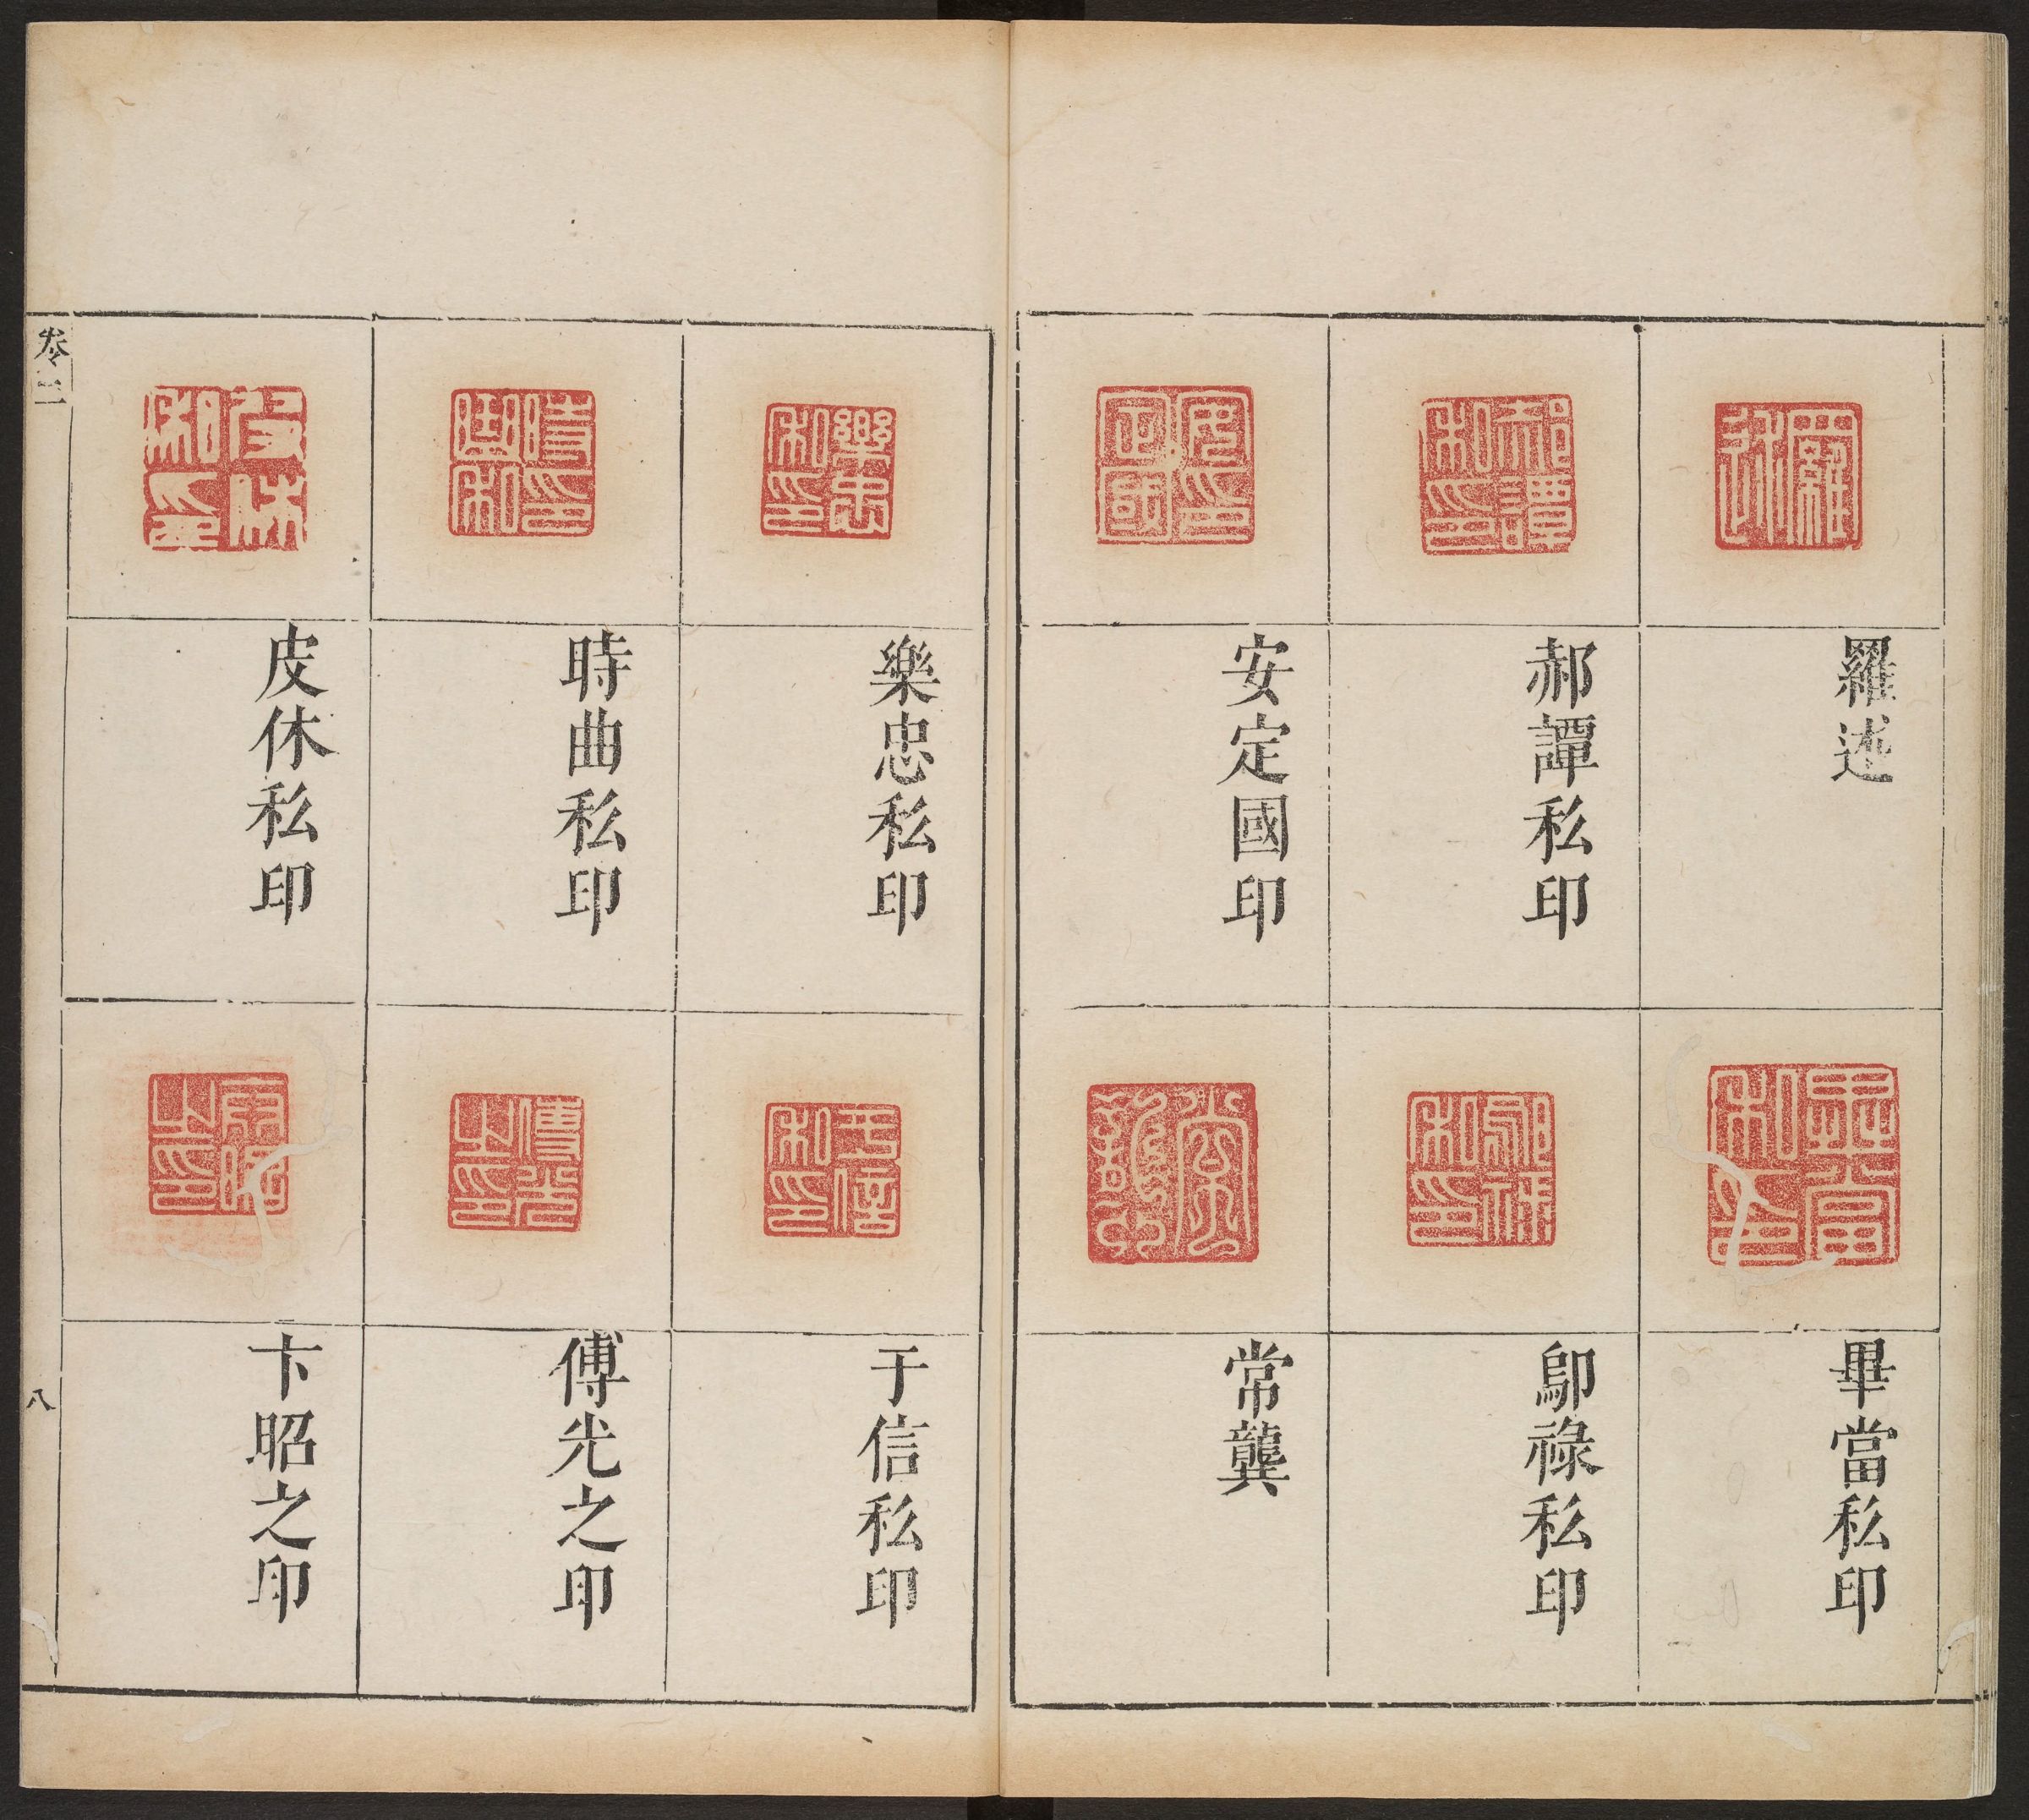 羅述
郝譚私印
安定國印
畢當私印
鄔祿私印
常龔
樂忠私印
時曲私印
皮休私印
于信私印
傅光之印
卞昭之印
卷三
八